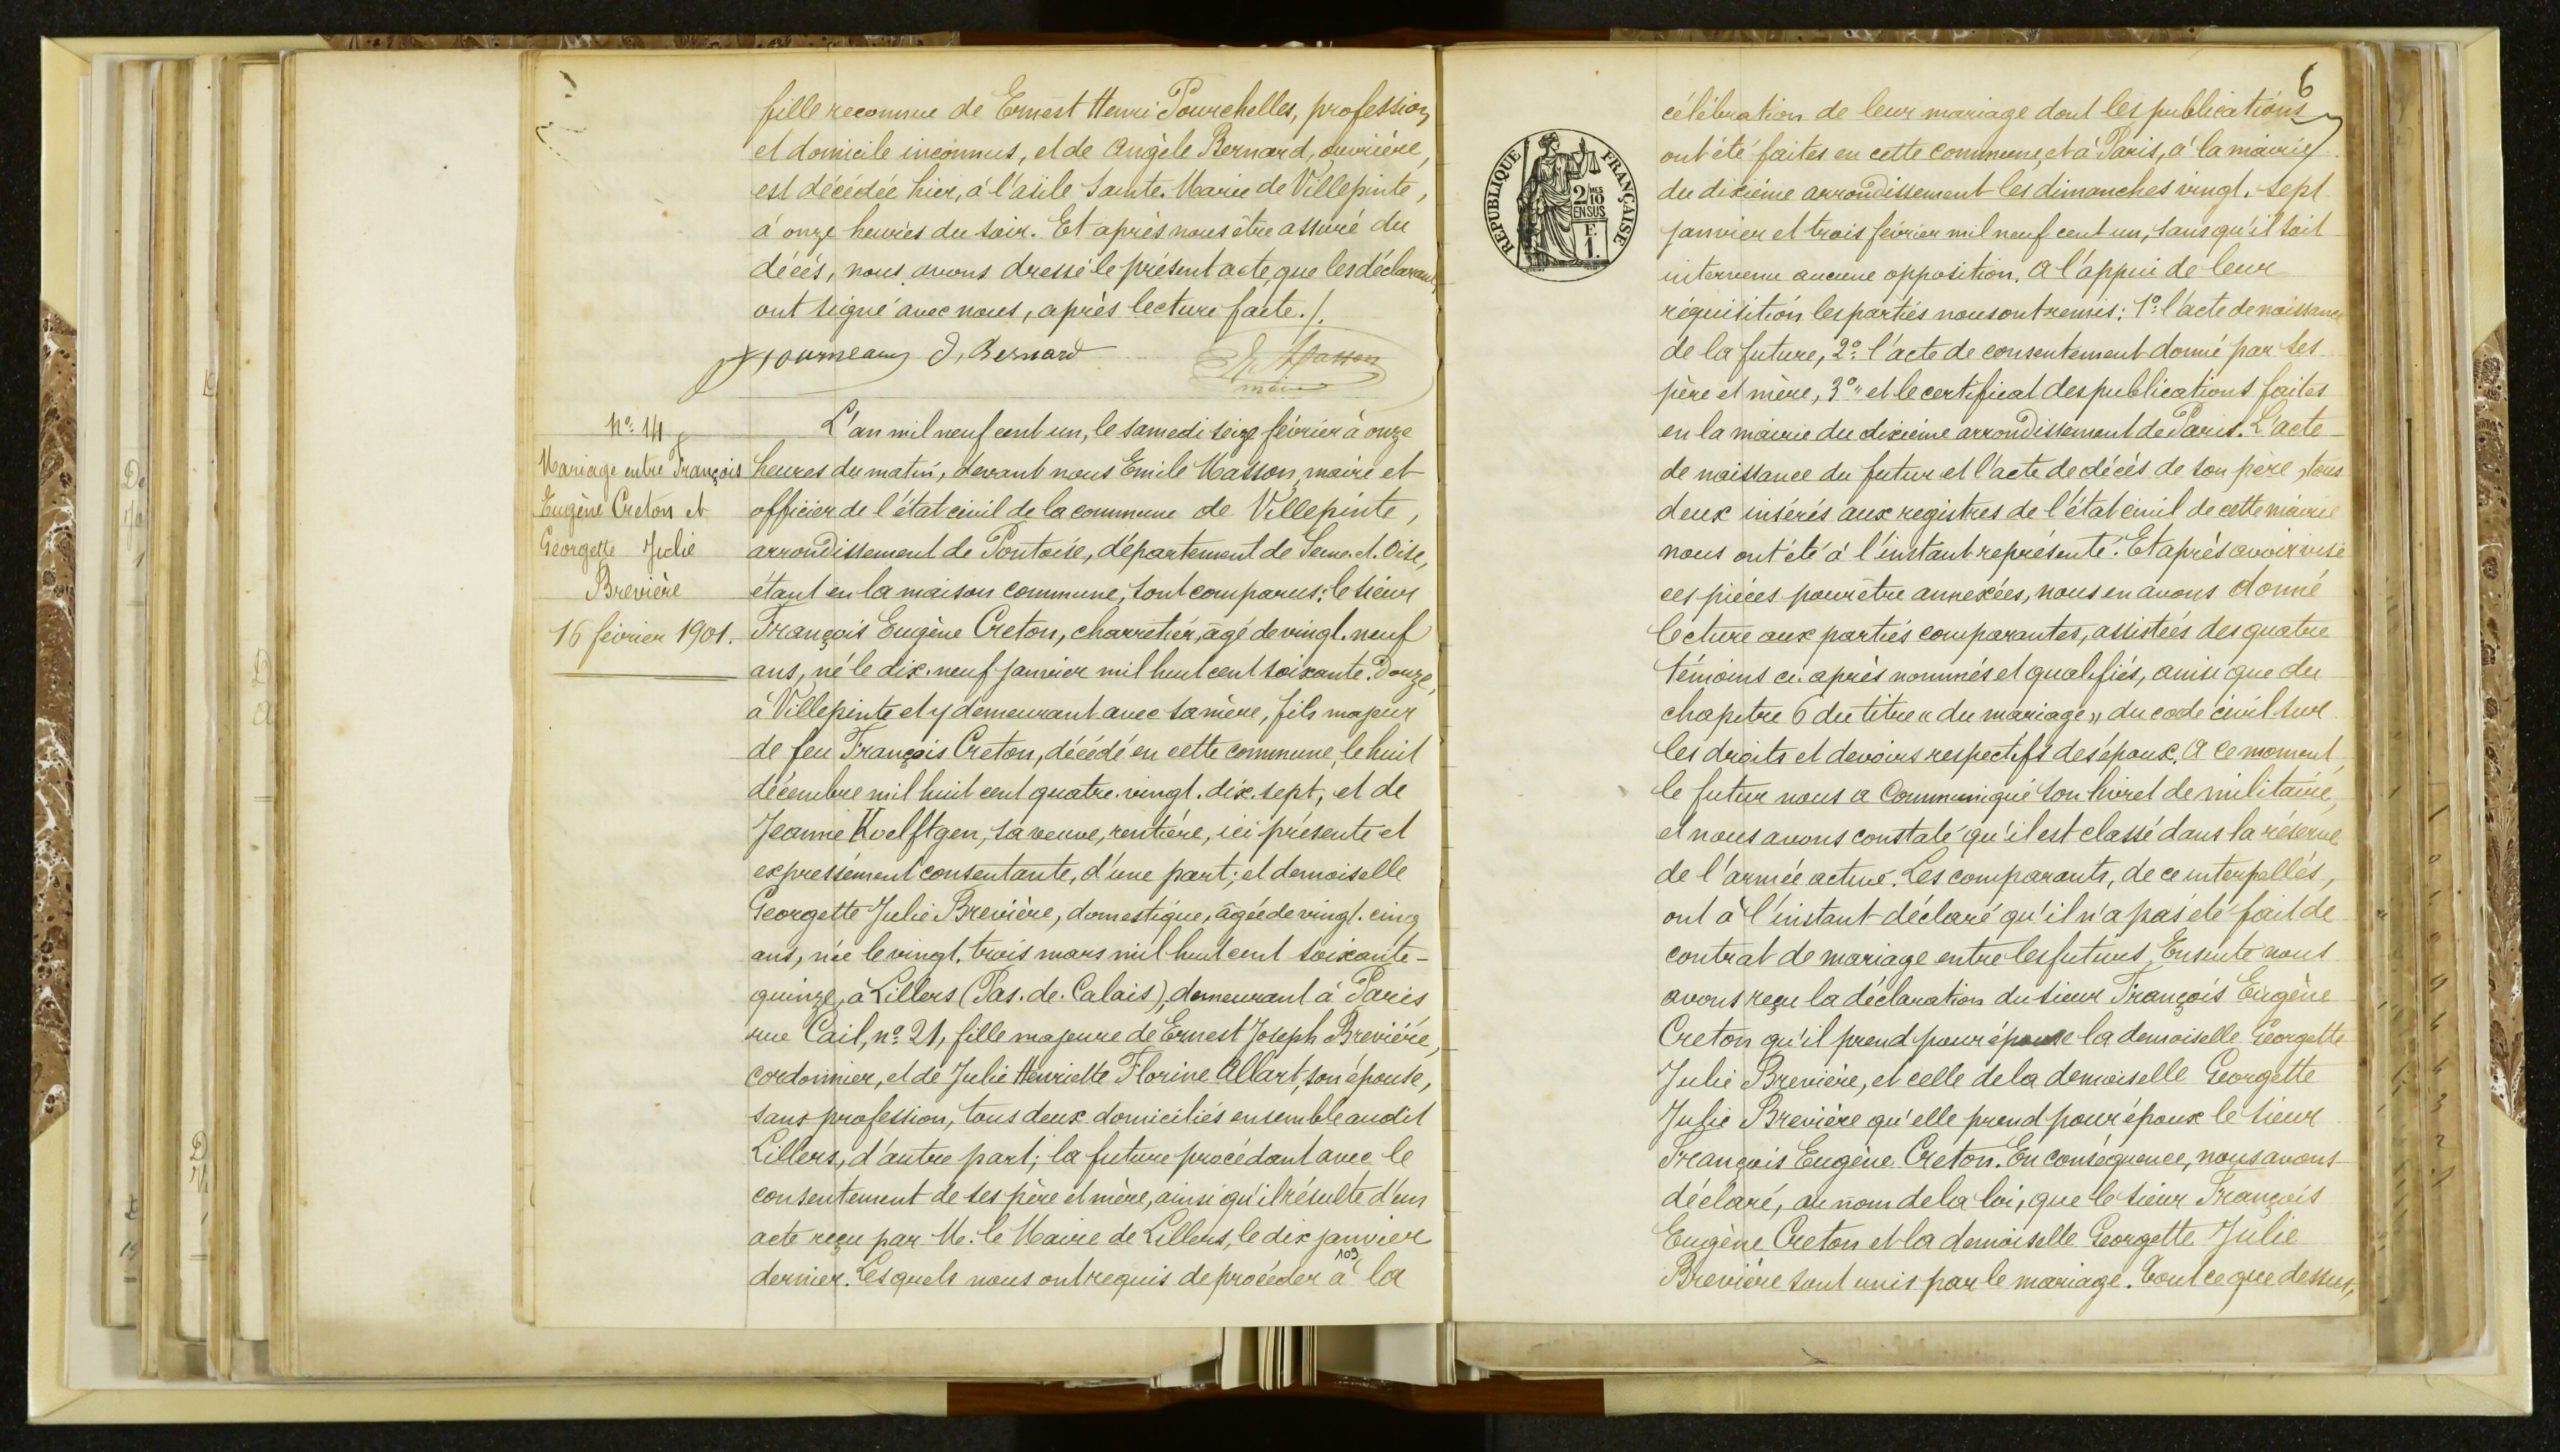 fille reconnue de Ernest Henri Pourchelles, profession
et domicile inconnus, et de Angèle Bernard, ouvrière,
est décédée hier, à l'asile Sainte. Marie de Villepinte,
à onze heures du soir. Et après nous être assuré du
décès, nous avons dressé le présent acte, que les déclarants
ont signé avec nous, après lecture faite./.
Journeaux J, Bernard E. Masson
maire
N° 14
Mariage entre François
Eugène Creton et
Georgette Julie
Brevière
16 février 1901.
L'an mil neuf cent un, le samedi seize février à onze
heures du matin, devant nous Emile Masson, maire et
officier de l'état civil de la commune de Villepinte,
arrondissement de Pontoise, département de Seine. et. Oise,
étant en la maison commune, sont comparus: le sieur
François Eugène Creton, charretier, âgé de vingt. neuf
ans, né le dix. neuf janvier mil huit cent soixante. Douze,
à Villepinte et y demeurant avec sa mère, fils majeur
de feu François Creton, décédé en cette commune, le huit
décembre mil huit cent quatre. vingt. dix. sept, et de
Jeanne Kvelftgen, sa veuve, rentière, ici présente et
expressément consentante, d'une part; et demoiselle
Georgette Julie Brevière, domestique, âgée de vingt. cinq
ans, née le vingt. trois mars mil huit cent soixante-
quinze, à Lillers (Pas. de. Calais), demeurant à Paris
rue Cail, n° 21, fille majeure de Ernest Joseph Brevière,
cordonnier, et de Julie Henriette Florine Allart, son épouse,
sans profession, tous deux domiciliés ensemble audit
Lillers, d'autre part; la future procédant avec le
consentement de ses père et mère, ainsi qu'il résulte d'un
acte reçu par M. le Maire de Lillers, le dix janvier
dernier. Lesquels nous ont requis de procéder à la
109
6
célébration de leur mariage dont les publications
ont été faites en cette commune, et à Paris, à la mairie
du dixième arrondissement les dimanches vingt. sept
janvier et trois février mil neuf cent un, sans qu'il soit
intervenu aucune opposition. A l'appui de leur
réquisition les parties nous ont remis: 1° l'acte de naissance
de la future, 2° l'acte de consentement donné par ses
père et mère, 3° " et le certificat des publications faites
en la mairie du dixième arrondissement de Paris. L'acte
de naissance du futur et l'acte de décès de son père, tous
deux insérés aux registres de l'état civil de cette mairie
nous ont été à l'instant représenté. Et après avoir visé
ces pièces pour être annexées, nous en avons donné
lecture aux parties comparantes, assistées des quatre
témoins ci. après nommés et qualifiés, ainsi que du
chapitre 6 du titre « du mariage » du code civil sur
les droits et devoirs respectifs des époux. A ce moment,
le futur nous a communiqué son livret de militaire,
et nous avons constaté qu'il est classé dans la réserve
de l'armée active. Les comparants, de ce interpellés,
ont à l'instant déclaré qu'il n'a pas été fait de
contrat de mariage entre les futurs. Ensuite nous
avons reçu la déclaration du sieur François Eugène
Creton qu'il prend pour épouse la demoiselle Georgette
Julie Brevière, et celle de la demoiselle Georgette
Julie Brevière qu'elle prend pour époux le sieur
François Eugène Creton. En conséquence, nous avons
déclaré, au nom de la loi, que le sieur François
Eugène Creton et la demoiselle Georgette Julie
Brevière sont unis par le mariage. Tout ce que dessus,
RÉPUBLIQUE FRANÇAISE
2/10
EN SUS
F.
1.